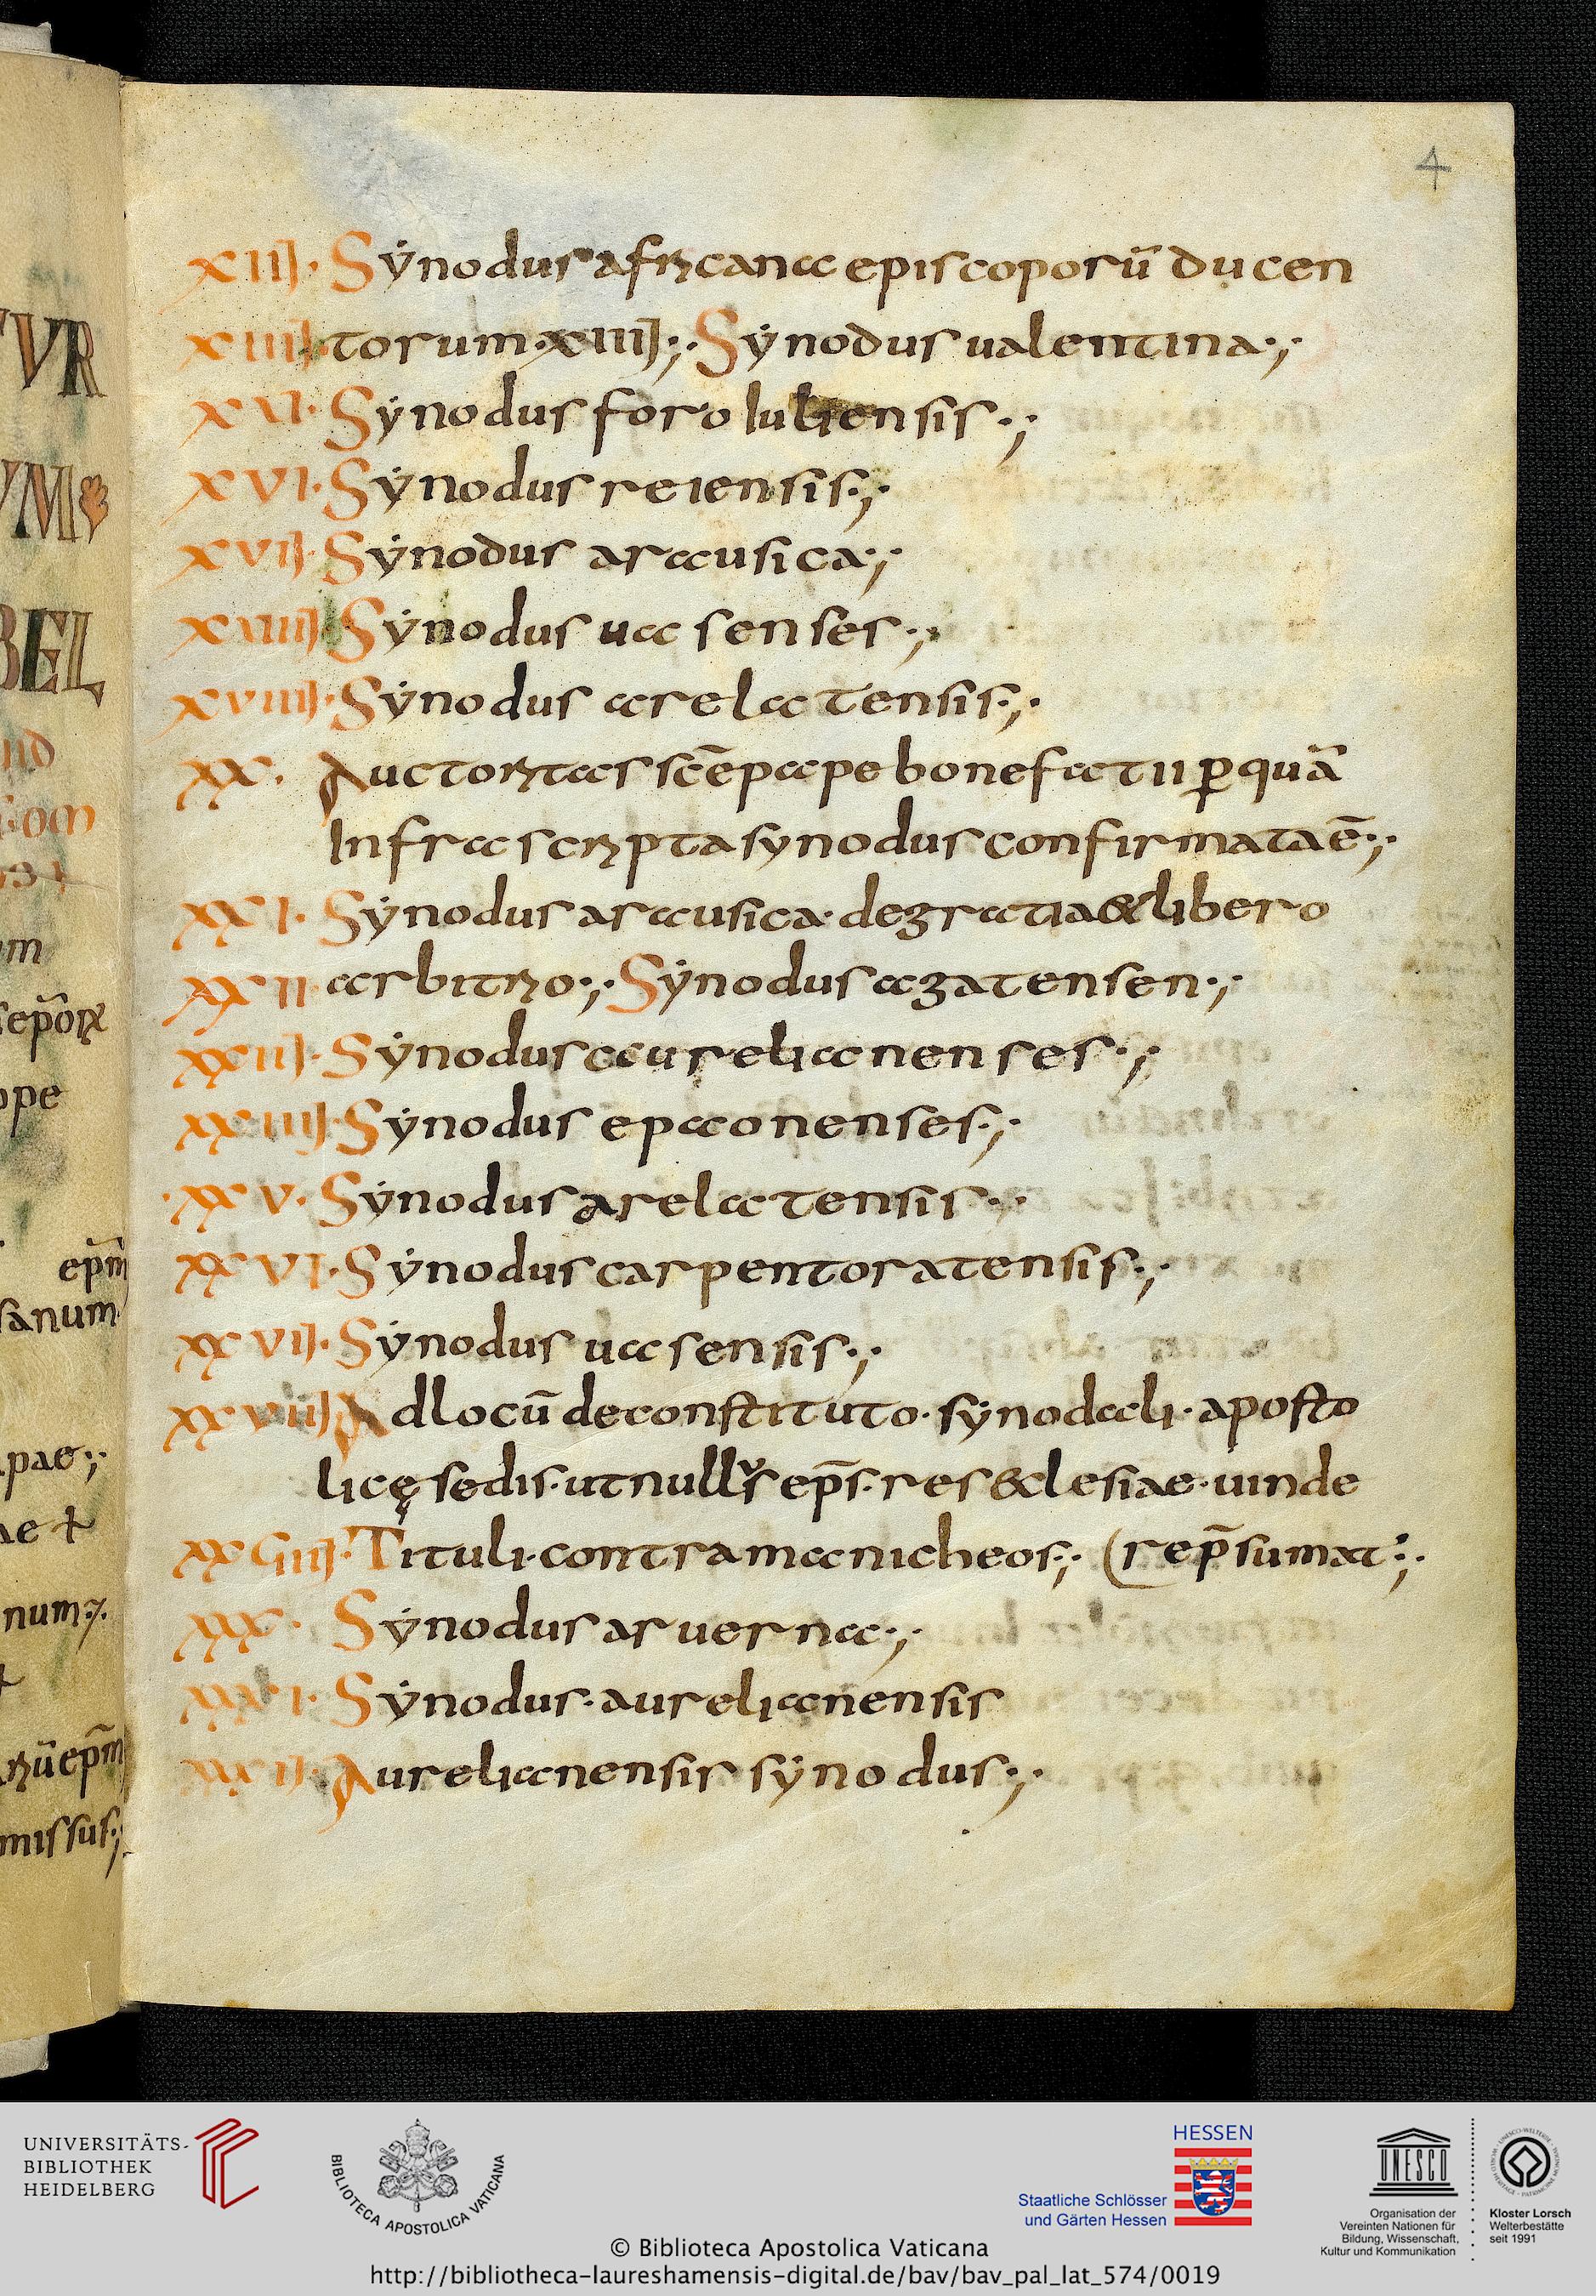 4
XIIJ· Sẏnodus africana episcoporū ducen
XIIIJ· torum·XIIIJ·;· Sẏnodus ualentina·;·
XVI· Sẏnodus foro Iuliensis·;
XVI· Sẏnodus reiensis·;·
XVIJ· Sẏnodus arausica·;·
XVIIIJ Sẏnodus uasenses·;·
XVIIIJ· Sẏnodus arelatensis·;·
XX· Auctoritas scē pape bonefacti II ꝑ quā
Infrascripta synodus confirmata ē·;·
XXI· Sẏnodus arausica· de gratia & libero
XXII arbitrio·;· Sẏnodus agatensen·;·
XXIIJ· Sẏnodus aurelianenses·;·
XXIIIJ· Sẏnodus epaonenses·;·
·XXV· Sẏnodus arelatensis·;·
XXVI· Sẏnodus carpentoratensis·;·
XXVIJ· Sẏnodus uasensis·;·
XXVIIJ Ad locū de constituto· sẏnodali· aposto
licę sedis· ut nullus ep̄s· res &clesiae· uinde
XXVIIIJ· Tituli· contra manicheos·;· (re p̄sumat·;·
XXX· Sẏnodus aruerna·;·
XXXI· Sẏnodus· aurelianensis
XXXII· Aurelianensis sẏnodus·;·
VR
VM
BEL
m
sep̄oꝝ
ope
ep̄m
sanum
pae·;·
ae
num
ep̄m
missus·;
UNIVERSITÄTS-
BIBLIOTHEK
HEIDELBERG
BIBLIOTECA APOSTOLICA VATICANA
HESSEN
Staatliche Schlösser
und Gärten Hessen
UNESCO
Organisation der
Vereinten Nationen für
Bildung, Wissenschaft,
Kultur und Kommunikation
Kloster Lorsch
Welterbestätte
seit 1991
© Biblioteca Apostolica Vaticana
http://bibliotheca-laureshamensis-digital.de/bav/bav_pal_lat_574/0019